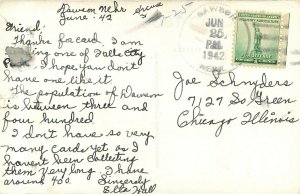 Dawson Nebr
June - 42
Friend;
Thanks for card. I am
sending one of Falls City
Park. I hope you don't
have one like it
The population of Dawson
is between three and
four hundred
I don't have so very
many cards yet as I
haven't been collecting
them very long. I have
around 400. Sincerely
Etta Hall
DAWSON
JUN
25
PM
1942
NEBR
Joe Schnyders
7127 So Green
Chicago Illinois